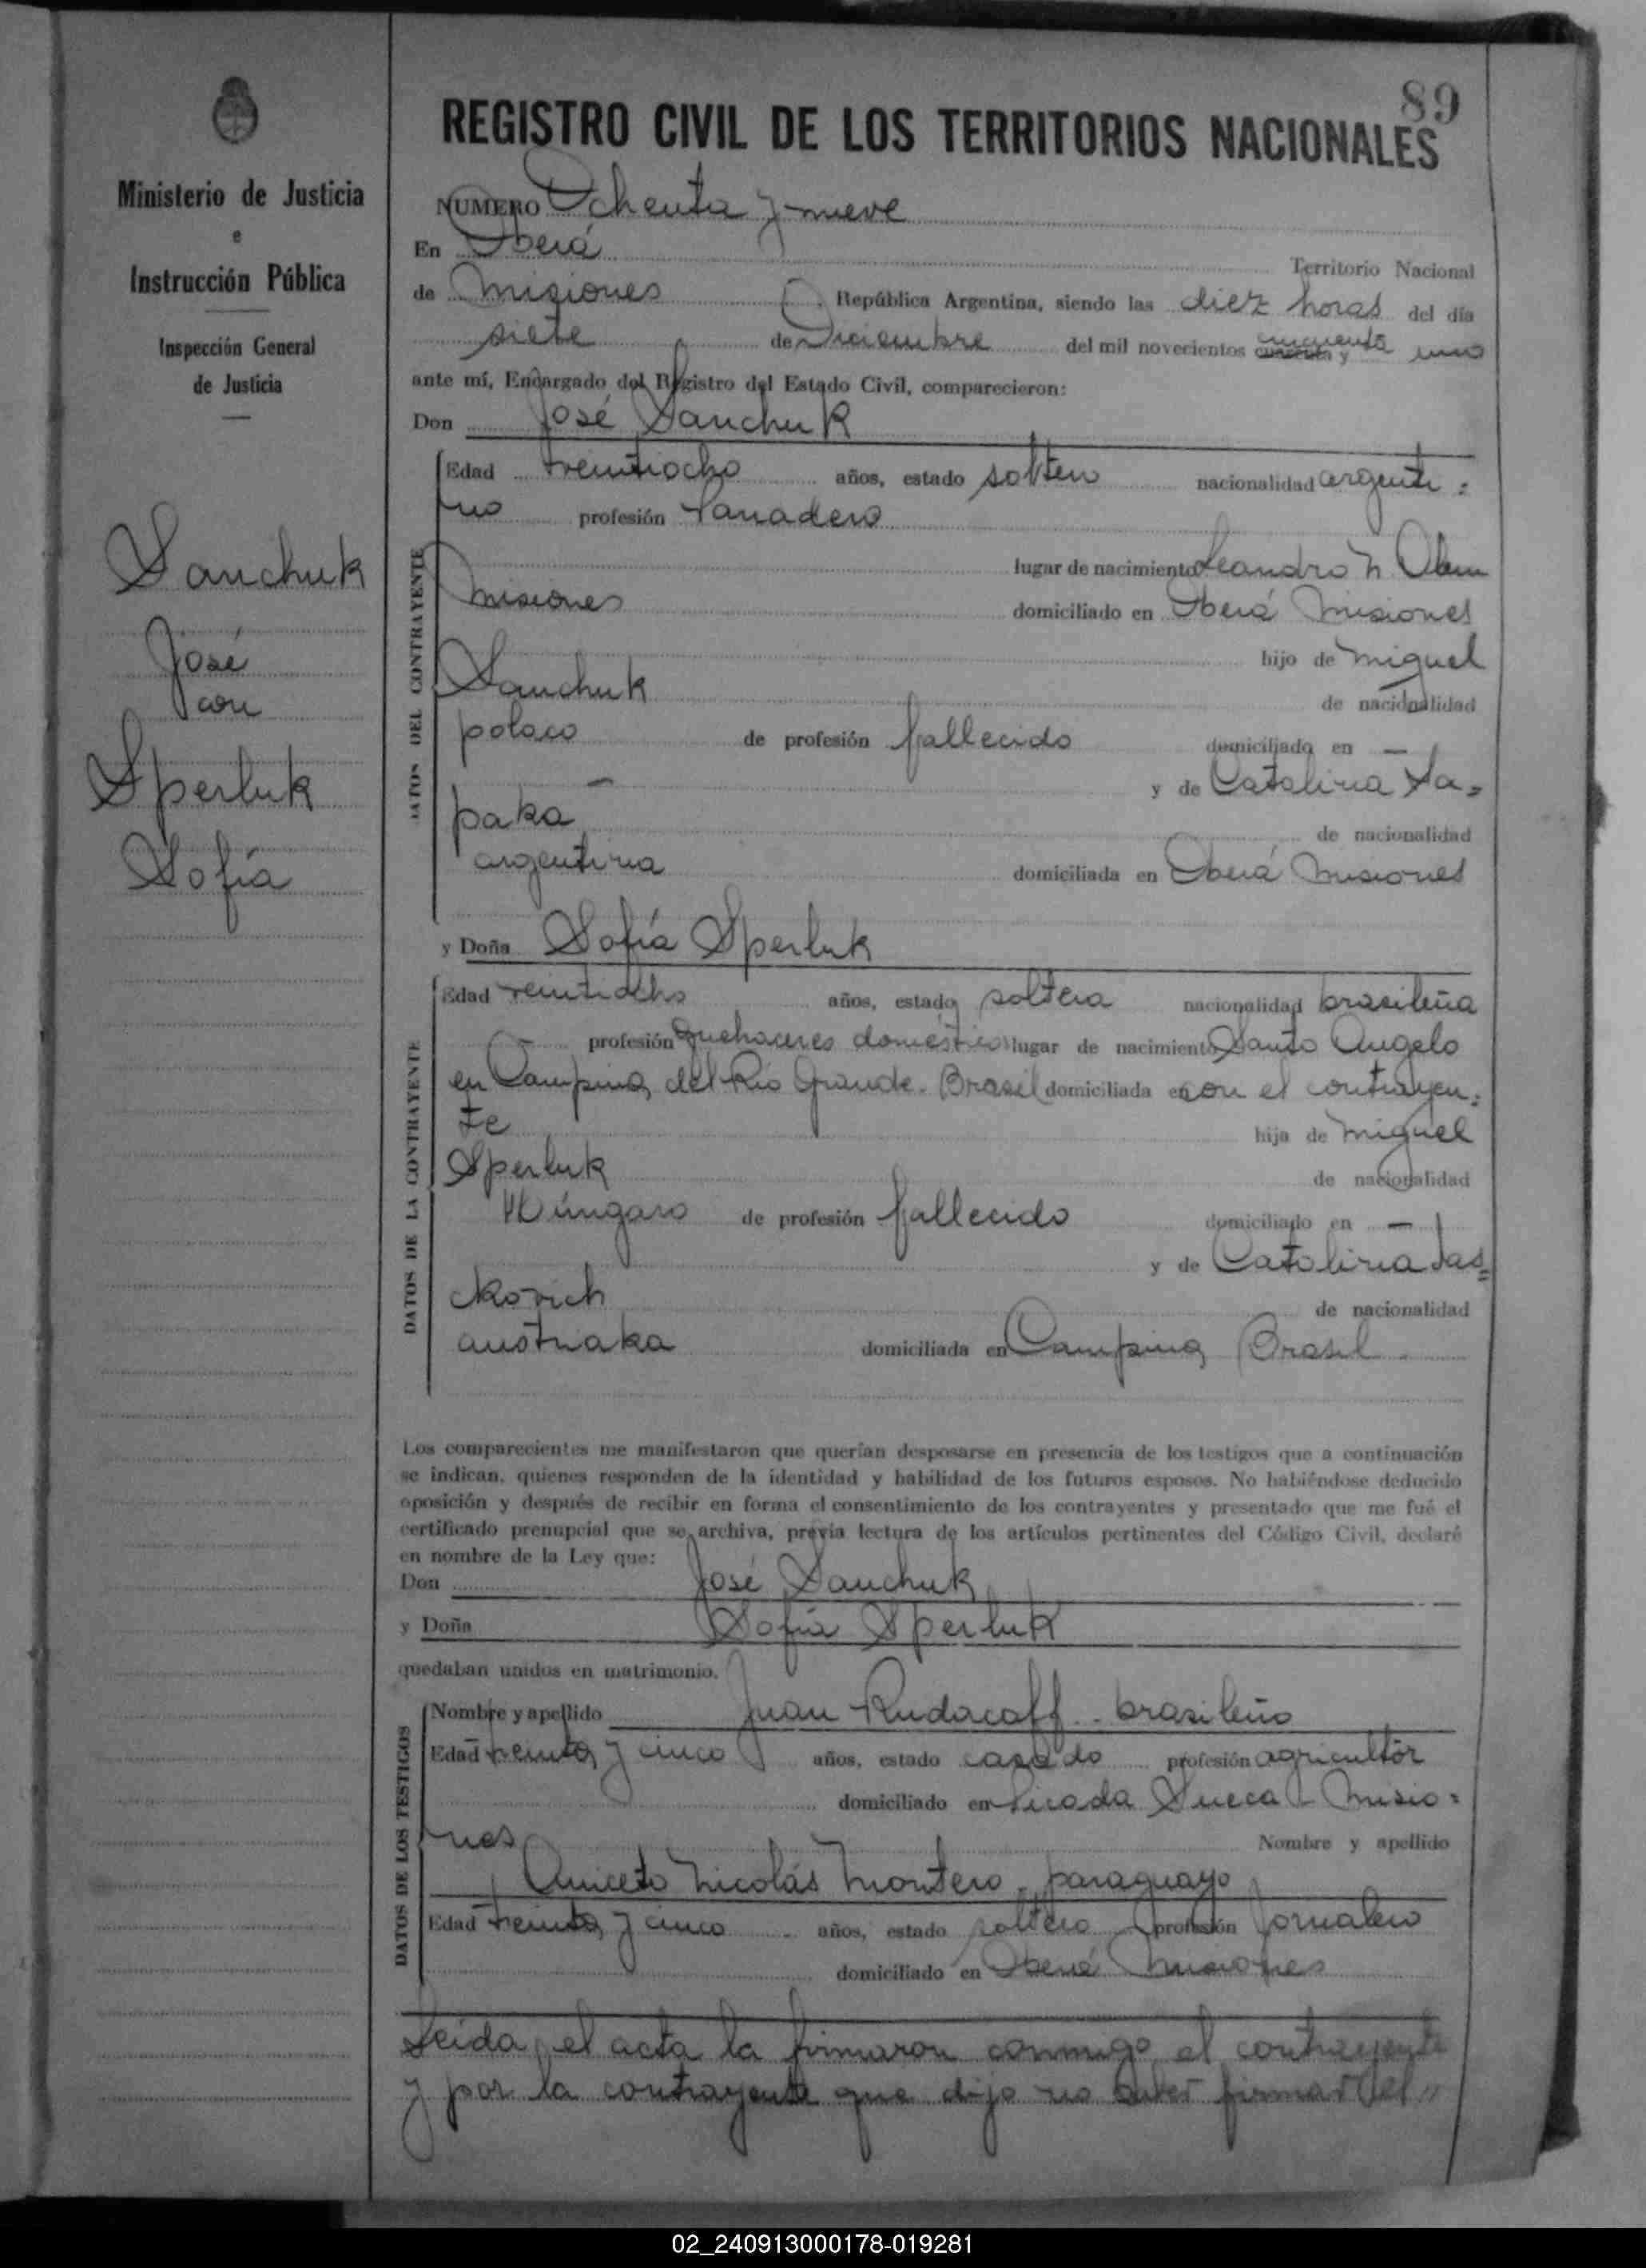 89
REGISTRO CIVIL DE LOS TERRITORIOS NACIONALES
Ministerio de Justicia
e
Instrucción Pública
Inspección General
de Justicia
Sanchuk
José
con
Sperluk
Sofía
NUMERO Ochenta y nueve
En Oberá Territorio Nacional
de Misiones República Argentina, siendo las diez horas del día
siete de Diciembre del mil novecientos cuarenta y cincuenta uno
ante mí, Encargado del Registro del Estado Civil, comparecieron:
Don José Sanchuk
DATOS DEL CONTRAYENTE
Edad treintiocho años, estado soltero nacionalidad argenti=
no profesión Panadero
lugar de nacimiento Leandro N Alem
Misiones domiciliado en Oberá Misiones
hijo de Miguel
Sanchuk de nacionalidad
polaco de profesión fallecido domiciliado en —
— y de Catalina Sa=
paka de nacionalidad
argentina domiciliada en Oberá Misiones
y Doña Sofía Sperluk
DATOS DE LA CONTRAYENTE
Edad años, estado soltera nacionalidad brasileña
profesión Quehaceres domésticos lugar de nacimiento Santo Angelo
en Campina del Rio Grande. Brasil domiciliada en con el contrayen=
te hija de Miguel
Sperluk de nacionalidad
Húngaro de profesión fallecido domiciliado en —
y de Catalina
de nacionalidad
austriaka domiciliada en Campina Brasil
Los comparecientes me manifestaron que querían desposarse en presencia de los testigos que a continuación
se indican, quienes responden de la identidad y habilidad de los futuros esposos. No habiéndose deducido
oposición y después de recibir en forma el consentimiento de los contrayentes y presentado que me fué el
certificado prenupcial que se archiva, previa lectura de los artículos pertinentes del Código Civil, declaré
en nombre de la Ley que:
Don José Sanchuk
y Doña Sofía Sperluk
quedaban unidos en matrimonio.
DATOS DE LOS TESTIGOS
Nombre y apellido Juan Rudacoff - brasileño
Edad treinta y cinco años, estado casado profesión agricultor
domiciliado en Picada Sueca - Misio=
nes Nombre y apellido
Aniceto Nicolás Montero - paraguayo
Edad treinta y cinco años, estado soltero profesión Jornalero
domiciliado en Oberá Misiones
Leida el acta la firmaron conmigo el contrayente
y por la contrayente que dijo no saber firmar el "
02_240913000178-019281